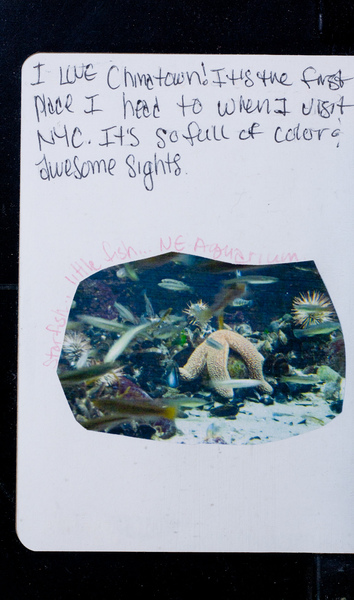 I LOVE Chinatown! It's the first
place I head to when I visit
NYC. It's so full of color &
awesome sights.
starfish... little fish... NE Aquarium